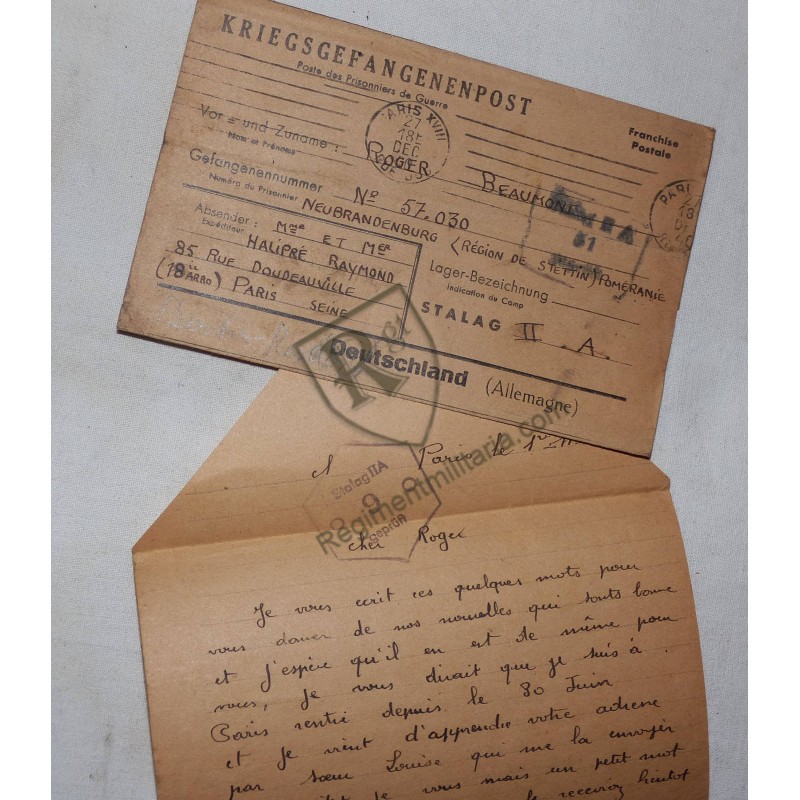 KRIEGSGEFANGENENPOST
Poste des Prisonniers de Guerre
Franchise
Postale
PARIS XVIII
27
18H
DEC
Vor = und Zuname :
Nom et Prénoms
ROGER BEAUMONT
Gefangenennummer
Numéro du Prisonnier
No 57.030
NEUBRANDENBURG (RÉGION DE STETTIN) POMÉRANIE
Absender :
Expéditeur
Mme ET Mer
HALIPRÉ RAYMOND
85 RUE DOUDEAUVILLE
(18ii ARRO) PARIS SEINE
Lager-Bezeichnung
Indication du Camp
STALAG II A.
31
PARI
40
Deutschland (Allemagne)
Rgt
Regimentmilitaria.com
Stalag IIA
geprüft
Paris le 1er
cher Roger
Je vous ecrit ces quelques mots pour
vous donner de nos nouvelles qui sonts bonne
et j'espère qu'il en est de même pour
vous, je vous dirait que je suis à
Paris rentré depuis le 30 Juin
et je vient d'apprendre votre adresse
par sœur Louise qui me la envoyer
je vous mais un petit mot
le recevrez bientot